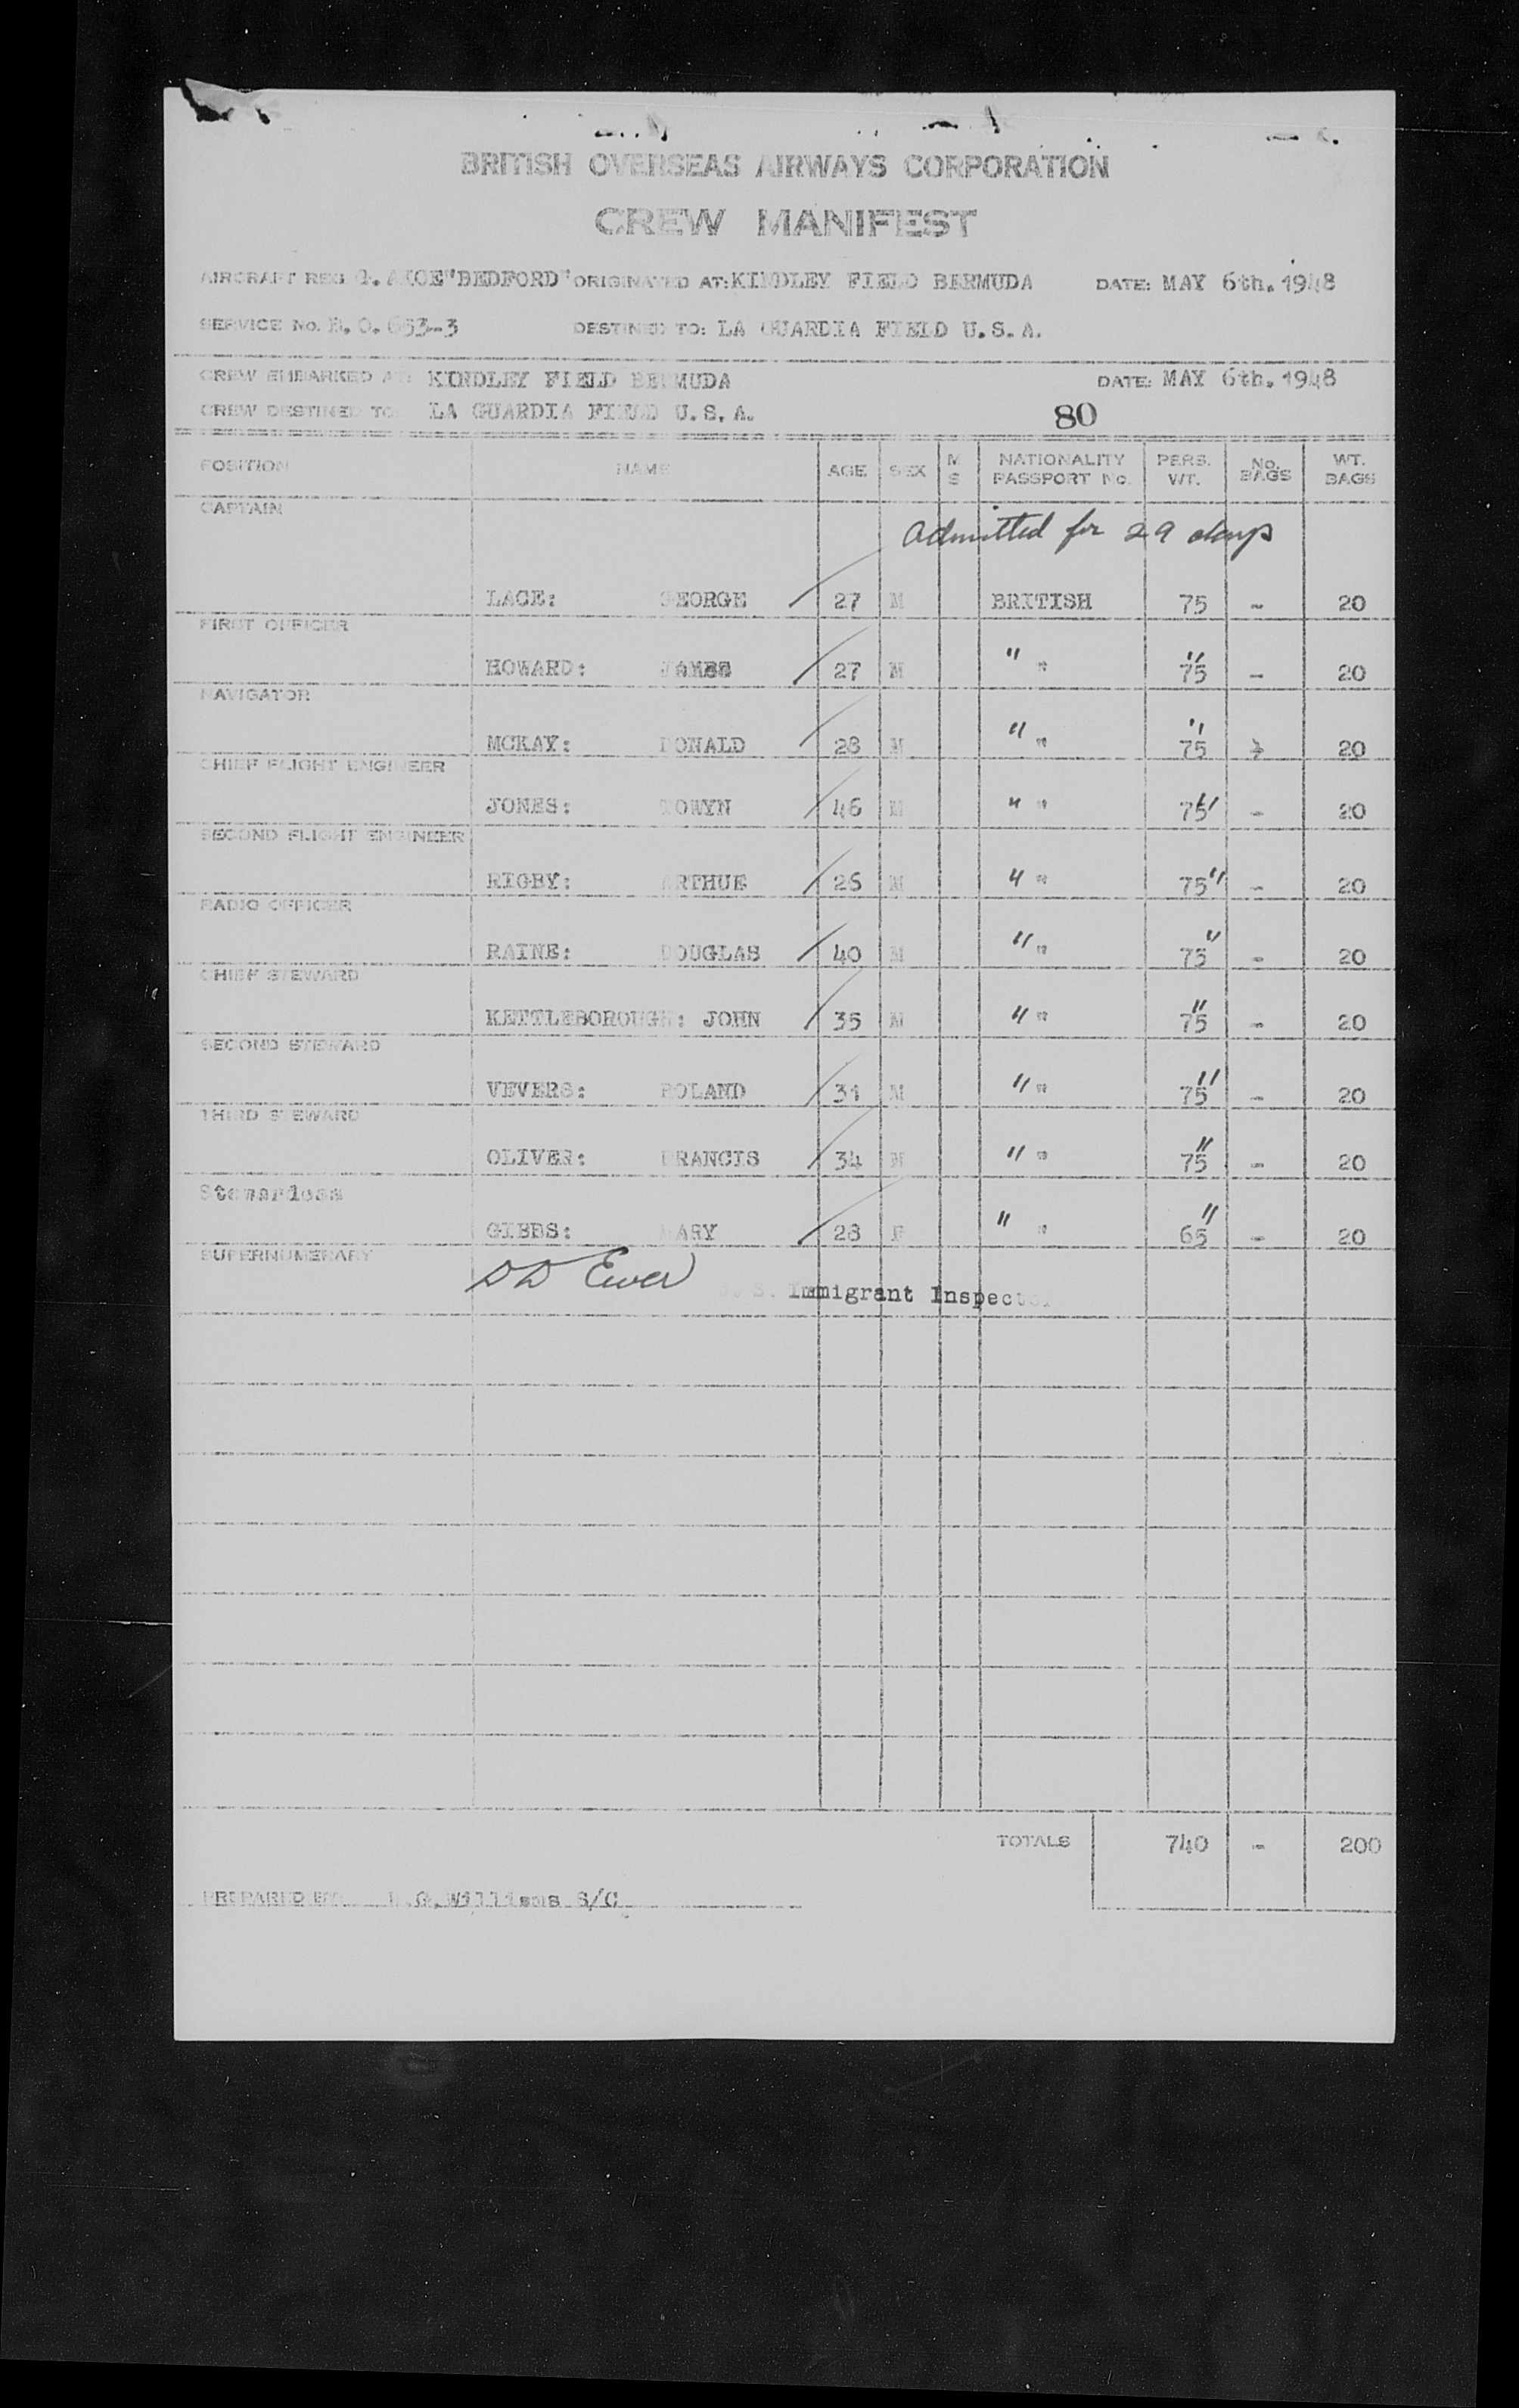 BRITISH OVERSEAS AIRWAYS CORPORATION
CREW MANIFEST
AIRCRAFT REG G. AKCE "BEDFORD" ORIGINATED AT: KINDLEY FIELD BERMUDA DATE: MAY 6th. 1948
SERVICE No. B.O. 653-3 DESTINED TO: LA GUARDIA FIELD U.S.A.
CREW EMBARKED AT: KINDLEY FIELD BERMUDA DATE: MAY 6th. 1948
CREW DESTINED TO LA GUARDIA FIELD U.S.A. 80
POSITION NAME AGE SEX M S NATIONALITY PASSPORT No. PERS. WT. No. BAGS WT. BAGS
CAPTAIN
Admitted for 29 days
LACE: GEORGE 27 M BRITISH 75 - 20
FIRST OFFICER
HOWARD: JAMES 27 M " " 75 - 20
NAVIGATOR
MCKAY: DONALD 28 M " " 75 - 20
CHIEF FLIGHT ENGINEER
JONES: TOWYN 46 M " " 75 - 20
SECOND FLIGHT ENGINEER
RIGBY: ARTHUR 26 M " " 75 - 20
RADIO OFFICER
RAINE: DOUGLAS 40 M " " 75 - 20
CHIEF STEWARD
KETTLEBOROUGH: JOHN 35 M " " 75 - 20
SECOND STEWARD
VEVERS: ROLAND 31 M " " 75 - 20
THIRD STEWARD
OLIVER: FRANCIS 34 M " " 75 - 20
Stewardess
GIBBS: MARY 28 F " " 65 - 20
SUPERNUMERARY
DD Ewer U. S. Immigrant Inspector
TOTALS 740 - 200
PREPARED BY G. Williams S/C